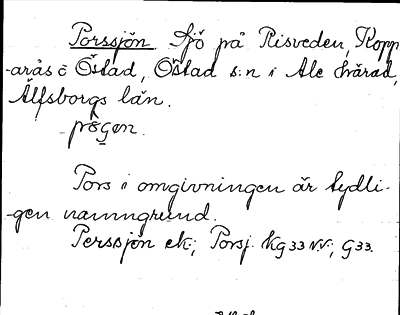 Porssjön Sjö på Risveden, Kopp-
arås o Östad, Östad s:n i Ale härad,
Älfsborgs län.
pögen.
Pors i omgivningen är tydli-
gen namngrund.
Perssjön ek; Porsj. Kg 33 NV; G 33.